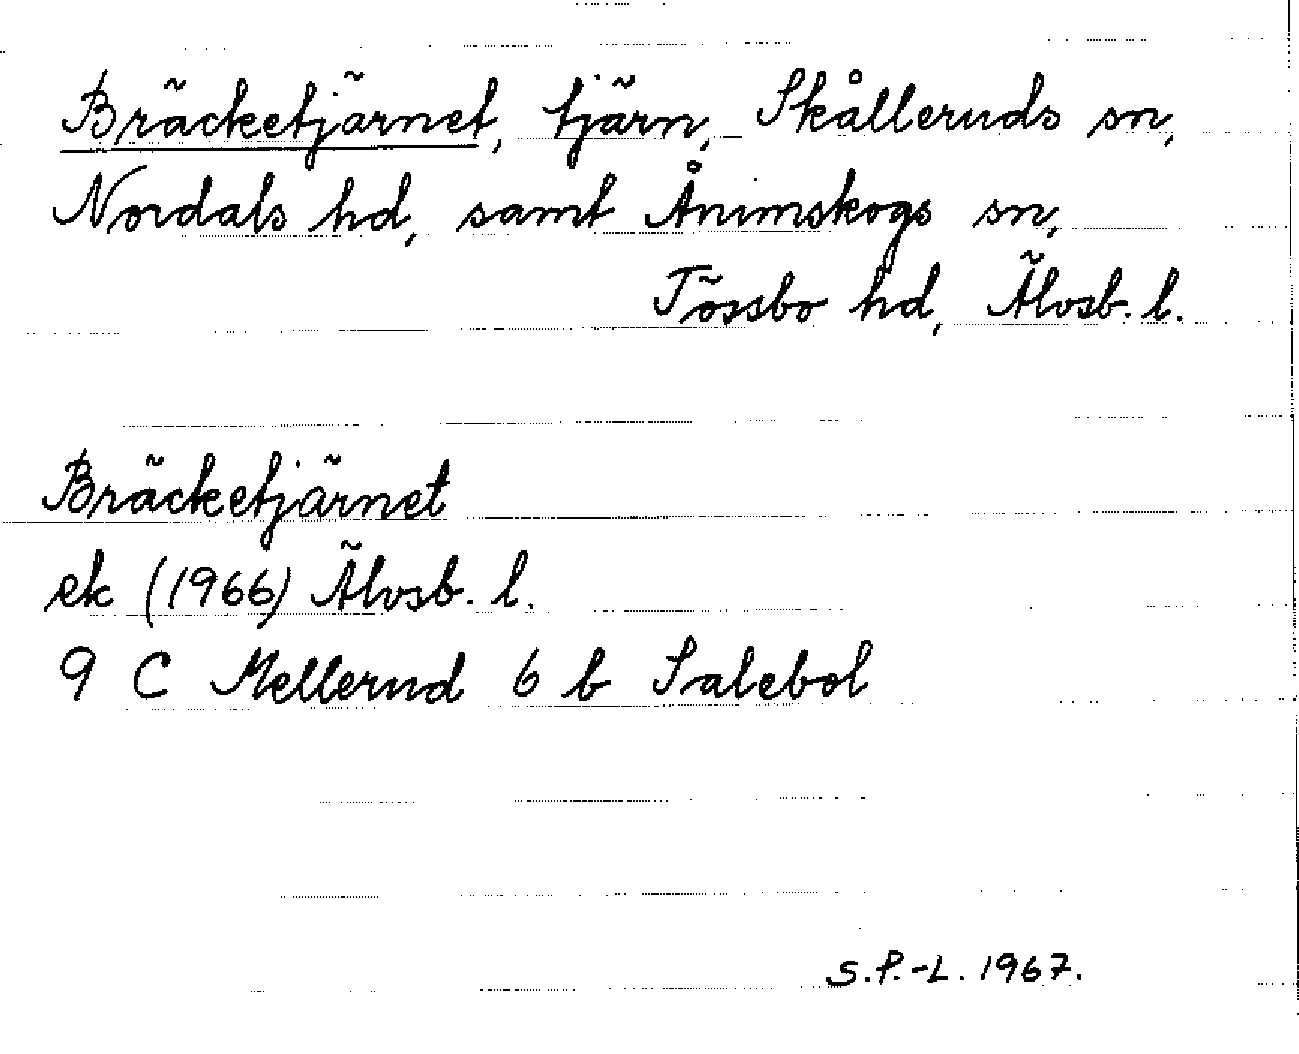 Bräcketjärnet, tjärn, Skålleruds sn,
Nordals hd, samt Ånimskogs sn,
Tössbo hd, Älvsb. l.
Bräcketjärnet
ek (1966) Älvsb. l.
9 C Mellerud 6 b Salebol
S.P.-L. 1967.